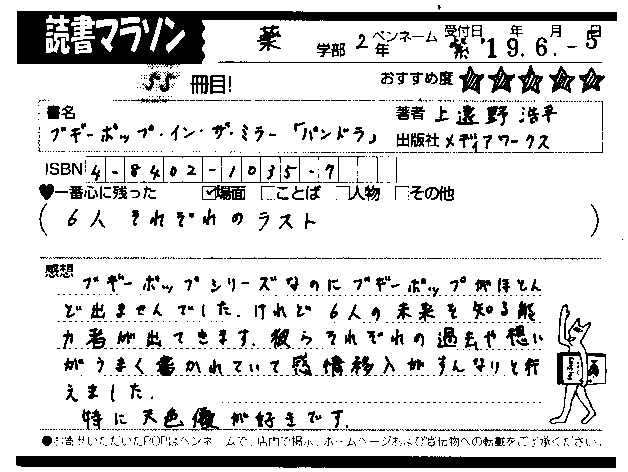 読書マラソン
薬 学部 2年 ペンネーム 紫 受付日 '19.6.-5 年 月 日
55 冊目! おすすめ度 ★★★★★
書名 著者 上遠野浩平
ブギーポップ・イン・ザ・ミラー「パンドラ」 出版社 メディアワークス
ISBN 4-8402-1035-7
♥一番心に残った ☑場面 □ことば □人物 □その他
(6人それぞれのラスト)
感想
ブギーポップシリーズなのにブギーポップがほとん
ど出ませんでした。けれど6人の未来を知る能
力者が出てきます。彼らそれぞれの過去や想い
がうまく書かれていて感情移入がすんなりと行
えました。
特に天色優が好きです。
●お寄せいただいたPOPはペンネームで、店内で掲示、ホームページおよび宣伝物への転載をご了承ください。